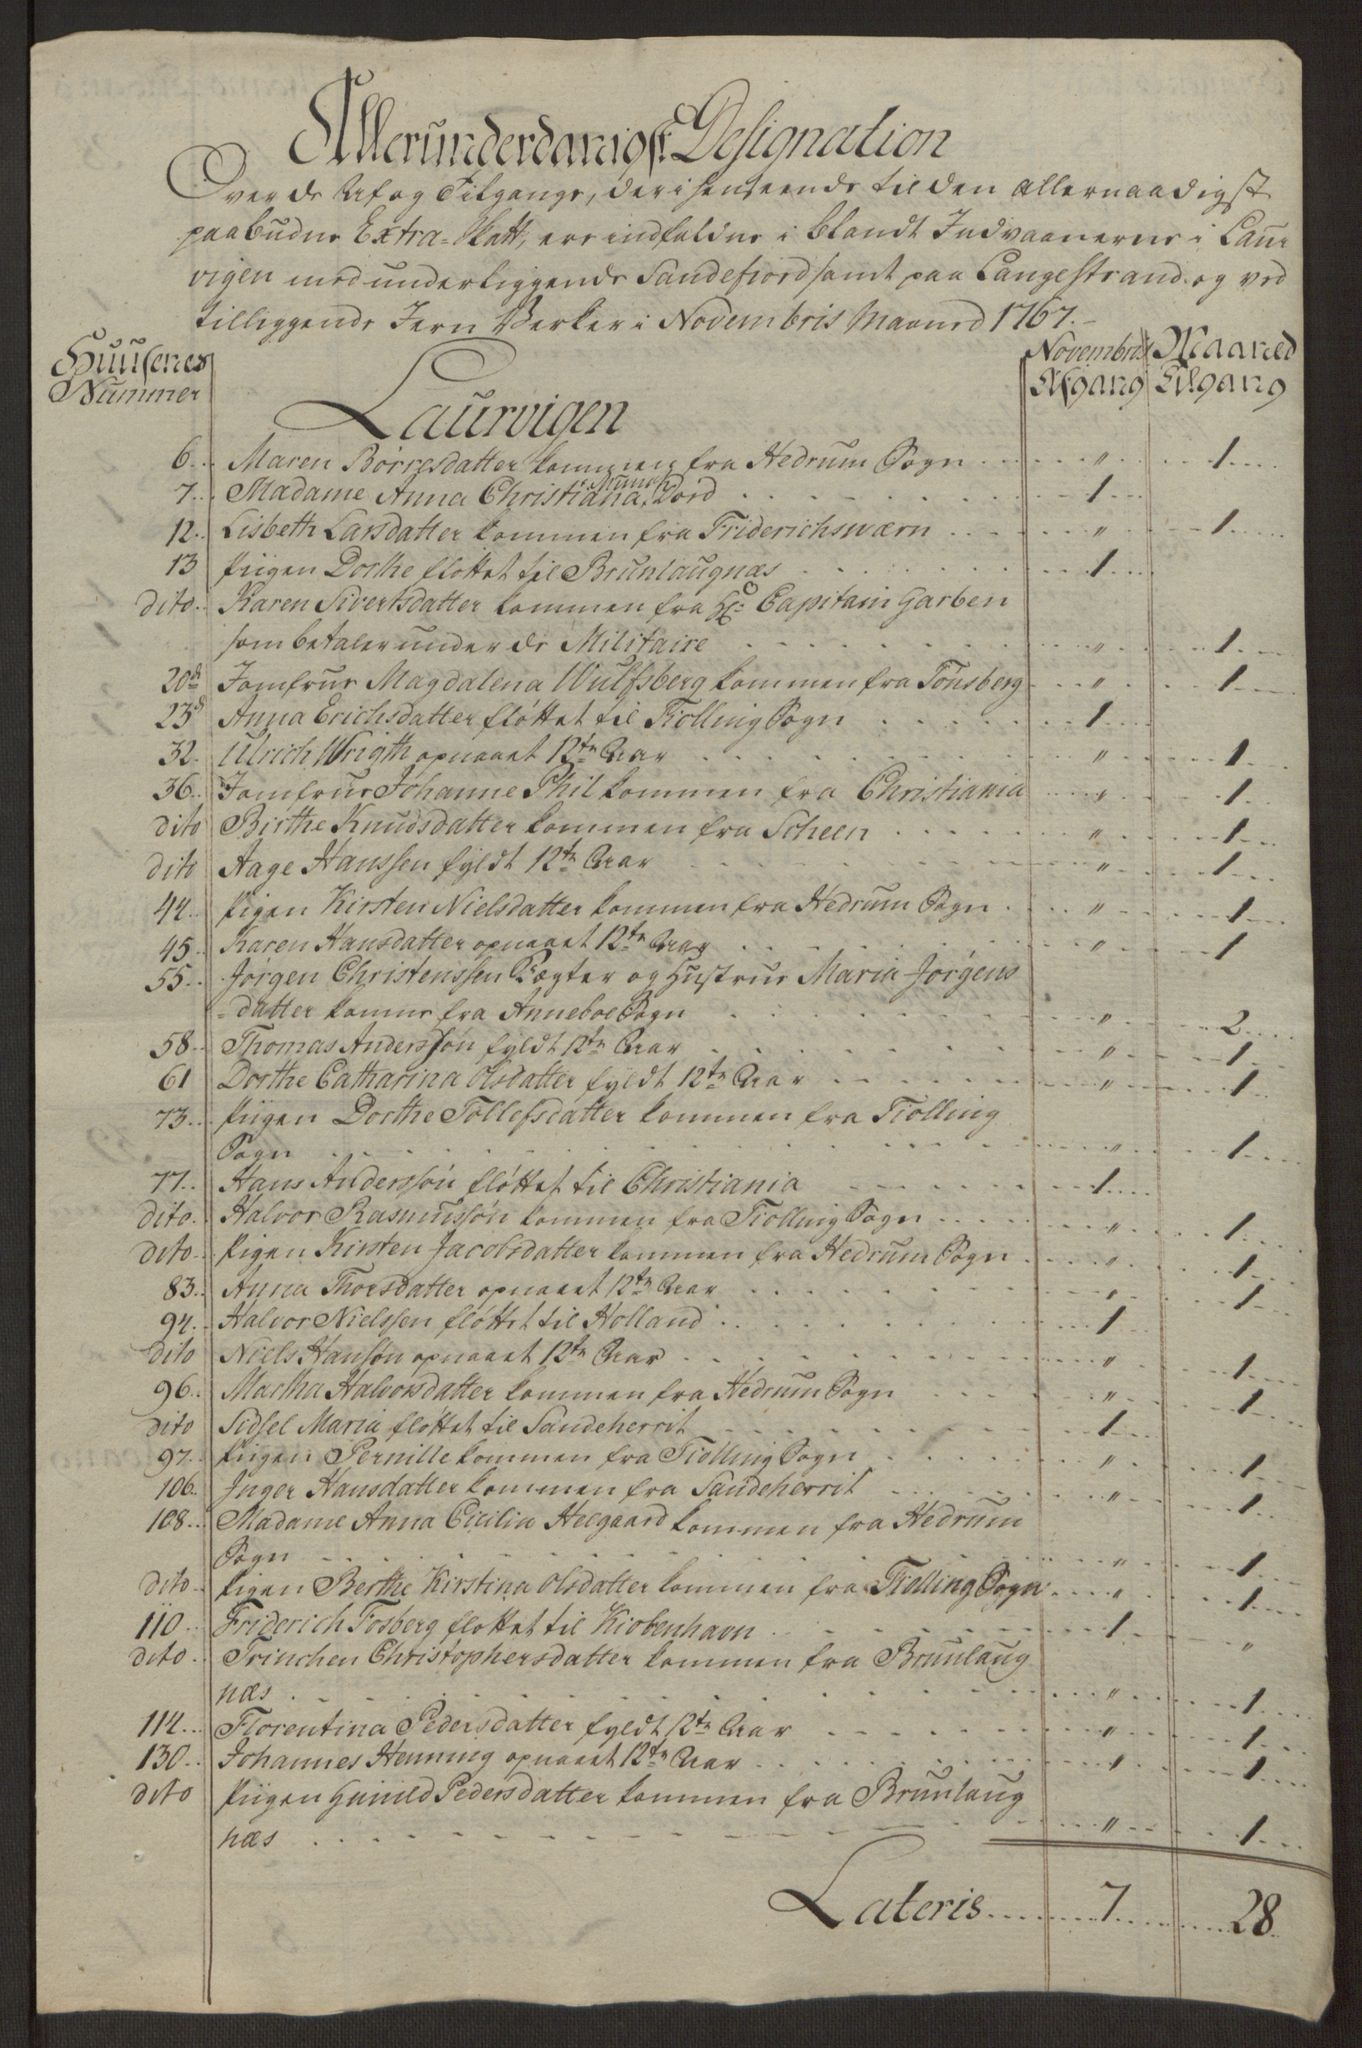 Allerunderdanigst Designation
Over de Af og Tilgange, der i henseende til den allernaadigst
paabudne Extra-Skatt, ere indfaldne i blandt Indvaanerne i Laur
vigen med underliggende Sandefiord samt paa Langestrand og ved
tilliggende Jern Verker i Novembris Maaned 1767.
Huusenes Nummer
Novembris Maaned
Afgang Tilgang
Laurvigen
6. Maren Börresdatter kommen fra Hedrum Sogn . . . " . . . 1
7. Madame Anna Christiana Dord . . . 1
12. Lisbeth Larsdatter kommen fra Friderichsværn . . . " . . . 1
13 Piigen Dorthe flöttet til Brunlaugnæs . . . 1
dito. Karen Sivertsdatter kommen fra Hr Capitain Garben
som betaler under de Militaire . . . " . . . 1
20de Jomfrue Magdalena Wulfsberg kommen fra Tönsberg . . . " . . . 1
23d Anna Erichsdatter flöttet til Tiolling Sogn . . . 1
32. Ulrich Wrigth opnaaet 12te Aar . . . " . . . 1
36. Jomfrue Johanne Phil kommen fra Christiania . . . " . . . 1
dito Birthe Knudsdatter kommen fra Scheen . . . " . . . 1
dito Aage Hanssen fyldt 12te Aar . . . " . . . 1
44. Pigen Kirsten Nielsdatter kommen fra Hedrum Sogn . . . " . . . 1
45. Karen Hansdatter opnaaet 12te Aar . . . " . . . 1
55. Jörgen Christenssen Vægter og Hustrue Maria Jörgens
-datter komne fra Anneboe Sogn . . . " . . . 2
58. Thomas Anderssön fyldt 12te Aar . . . " . . . 1
61 Dorthe Catharina Olsdatter fyldt 12te Aar . . . " . . . 1
73. Piigen Dorthe Tollefsdatter kommen fra Tiolling
Sogn . . . " . . . 1
77. Hans Anderssön flöttet til Christiania . . . 1
dito. Halvor Rasmussön kommen fra Tiolling Sogn . . . " . . . 1
dito. Pigen Kirsten Jacobsdatter kommen fra Hedrum Sogn . . . " . . . 1
83. Anna Thorsdatter opnaaet 12te Aar . . . " . . . 1
94. Halvor Nielssen flöttet til Holland . . . 1
dito Niels Hansön opnaaet 12te Aar . . . " . . . 1
96. Martha Halvorsdatter kommen fra Hedrum Sogn . . . " . . . 1
dito Sidsel Maria flöttet til Sandeherrit . . . 1
97. Piigen Pernille kommen fra Tiolling Sogn . . . " . . . 1
106. Inger Hansdatter kommen fra Sandeherrit . . . " . . . 1
108. Madame Anna Cicilia Heegaard kommen fra Hedrum
Sogn . . . " . . . 1
dito. Pigen Berthe Kirstina Olsdatter kommen fra Tiolling Sogn . . . " . . . 1
110. Friderich Fosberg flöttet til Kiobenhavn . . . 1 . . . "
dito. Trinchen Christophersdatter kommen fra Brunlaug
næs . . . " . . . 1
114. Florentina Pedersdatter fyldt 12te Aar . . . " . . . 1
130. Johannes Henning opnaaet 12te Aar . . . " . . . 1
dito Piigen Gunild Pedersdatter kommen fra Brunlaug
næs . . . " . . . 1
Lateris . . . 7 . . . 28